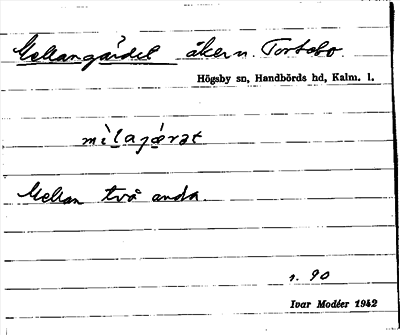 Mellangärdet åker n. Tortebo.
Högsby sn, Handbörds hd, Kalm. l.
mìlajǽrət
Mellan två andra.
s. 90
Ivar Modéer 1942